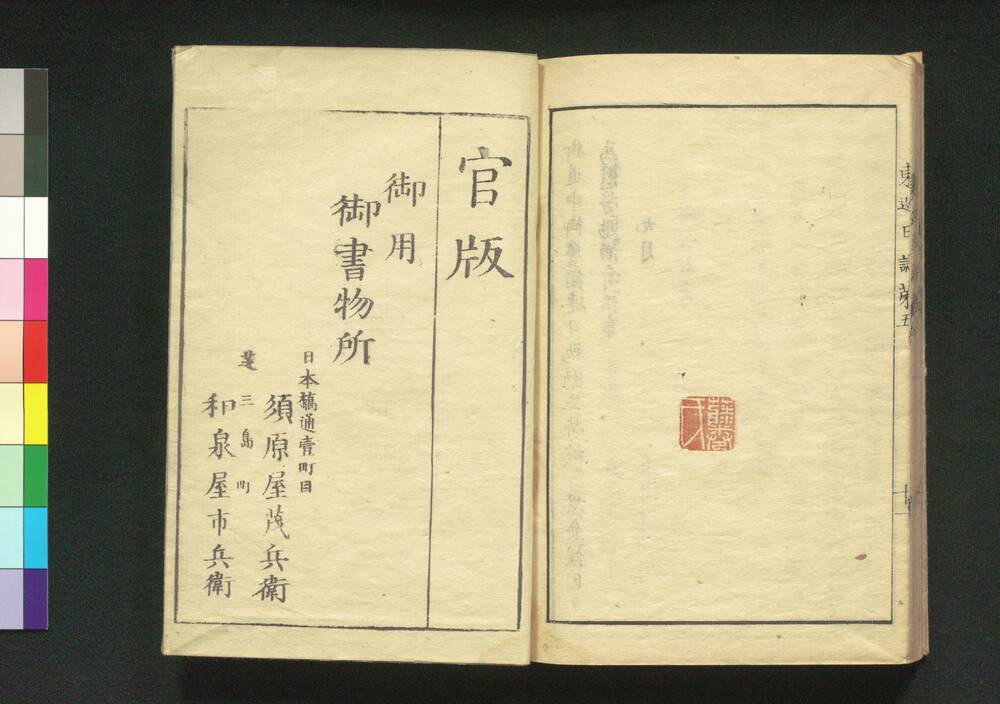 東巡日誌 第五
官版
御用
御書物所
日本橋通壹町目
須原屋茂兵衛
芝三島町
和泉屋市兵衛